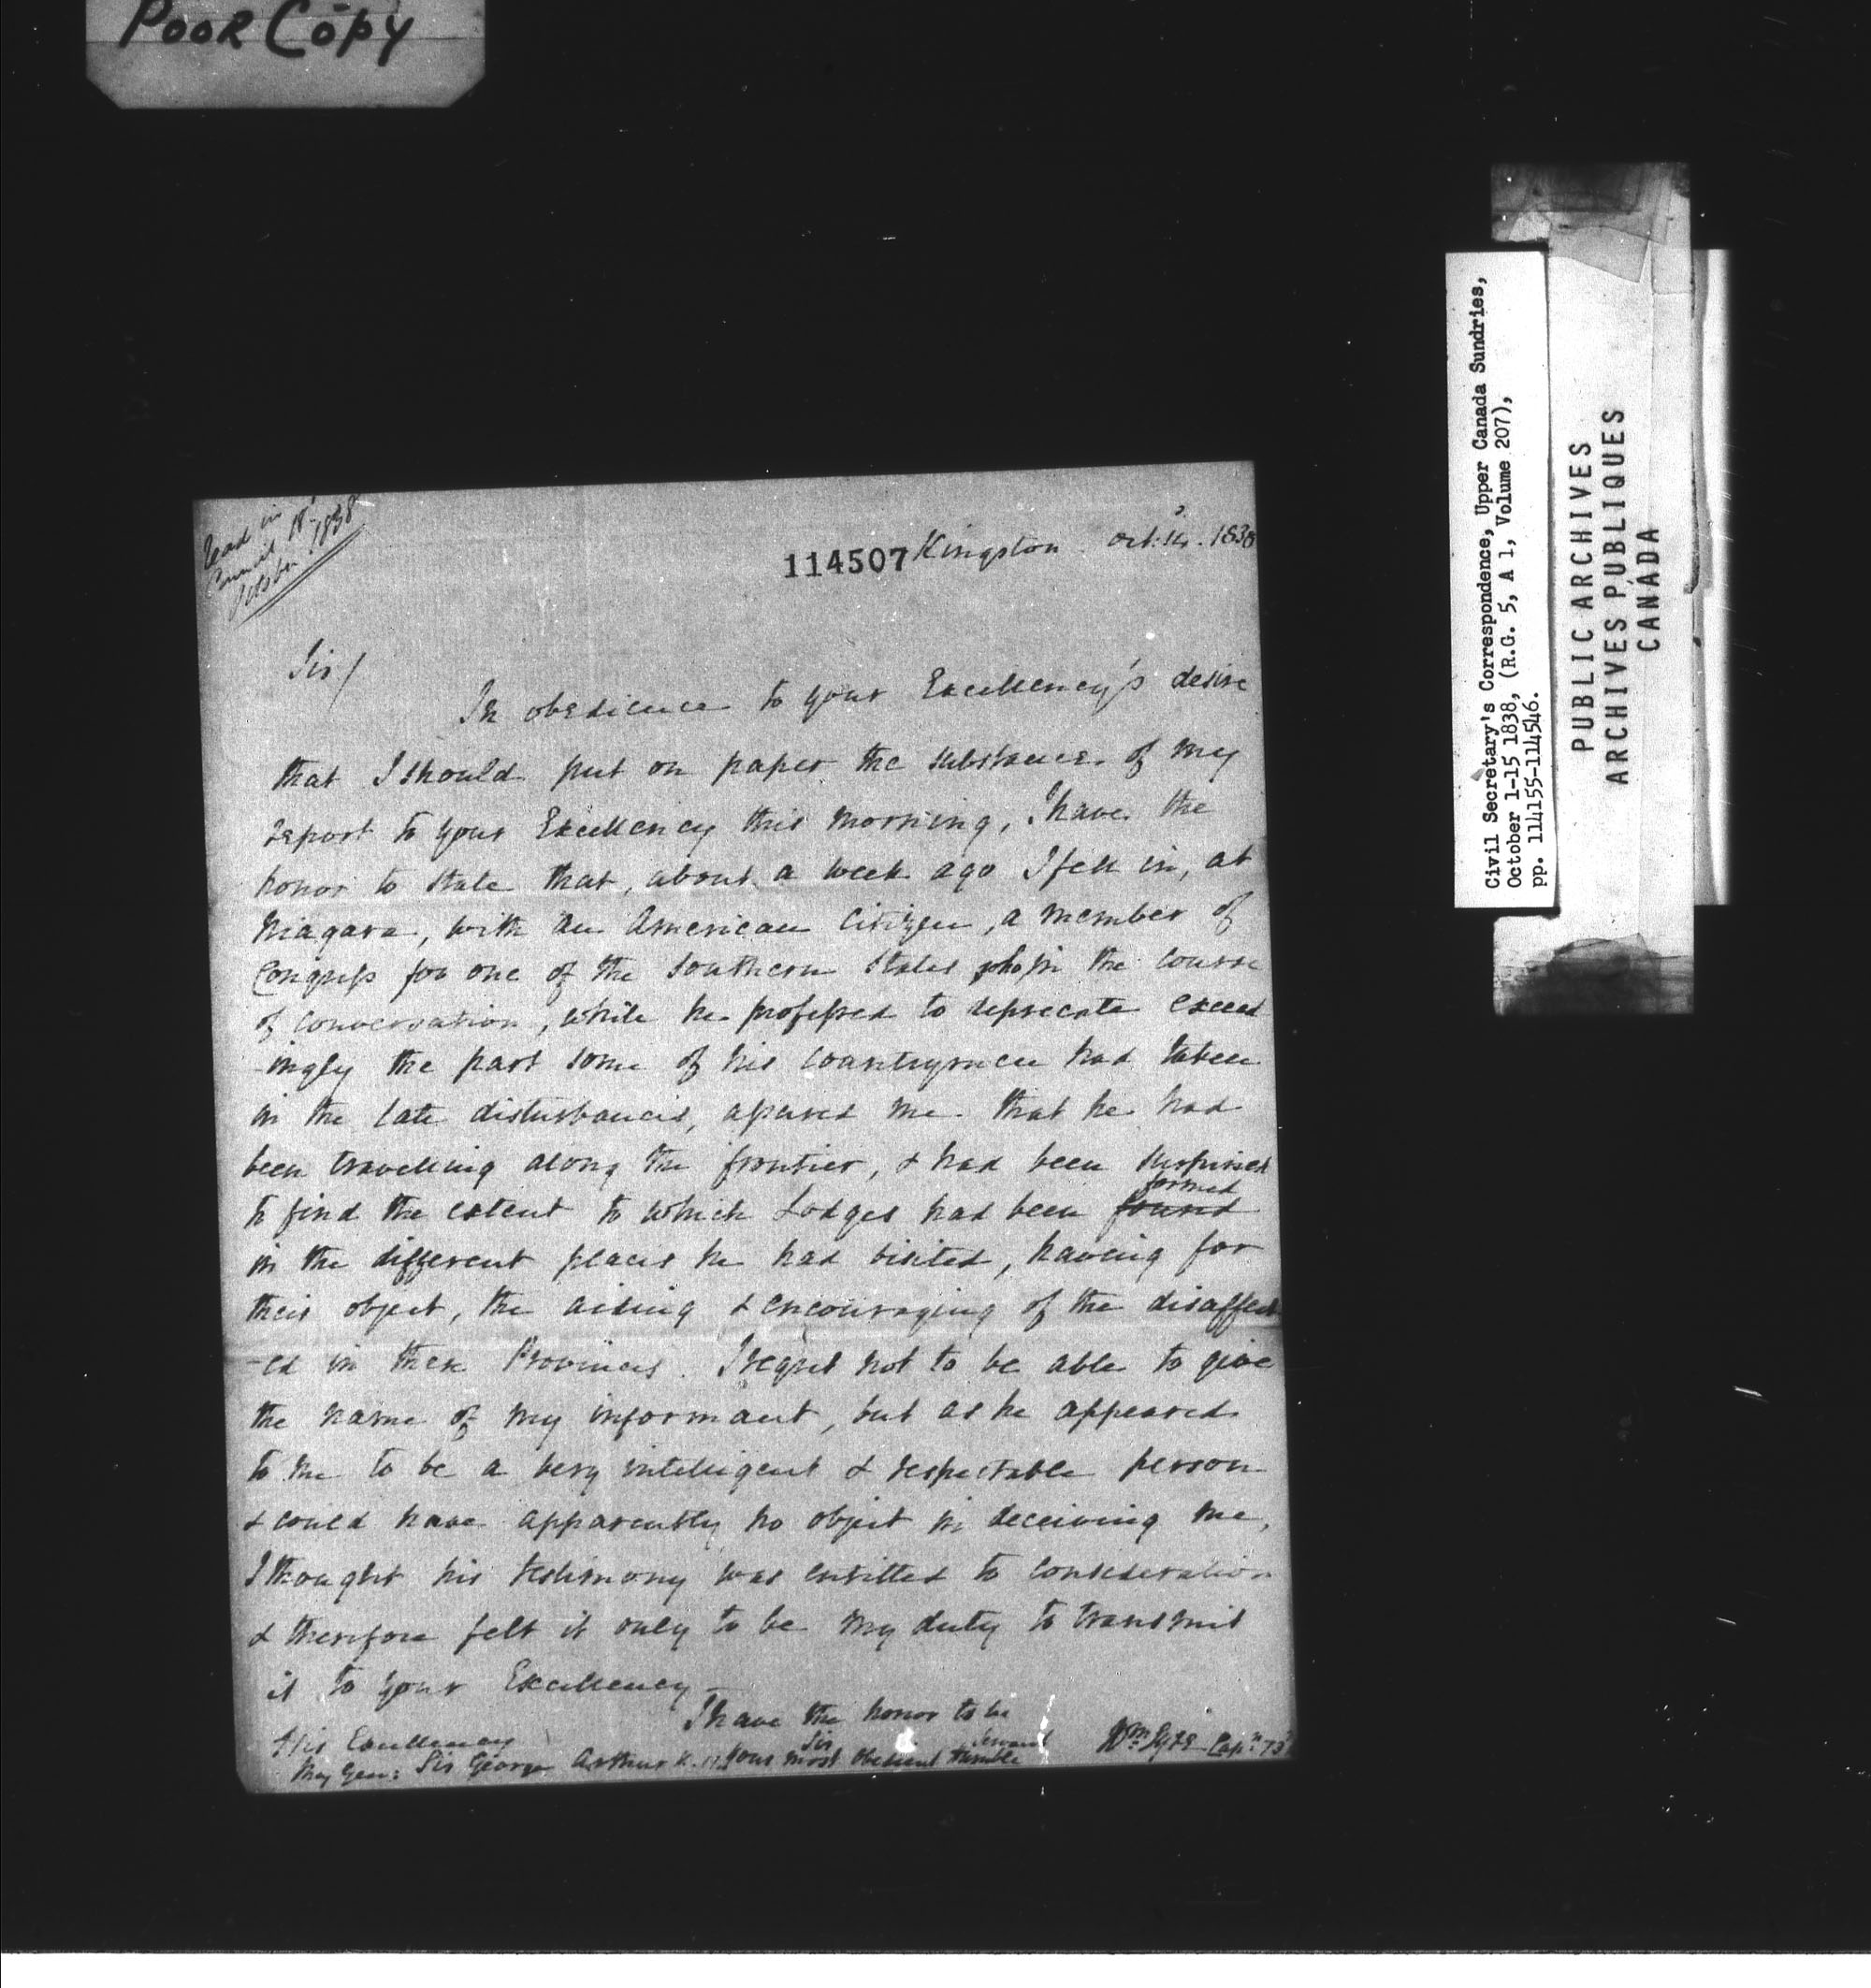 POOR COPY
Read in
Council 18th
October 1838
114507 Kingston Oct. 14. 1838
Sir/
In obedience to your Excellency's desire
that I should put on paper the substance of my
report to your Excellency this morning, I have the
honor to state that, about a week ago I fell in, at
Niagara, with an American Citizen, a member of
Congress for one of the Southern States who, in the course
of conversation, while he professed to deprecate exceed
-ingly the part some of his countrymen had taken
in the late disturbances, assured me that he had
been travelling along the frontier, & had been surprised
to find the extent to which Lodges had been found formed
in the different places he had visited, having for
their object, the aiding & encouraging of the disaffect
-ed in these Provinces. I regret not to be able to give
the name of my informant, but as he appeared
to me to be a very intelligent & respectable person
& could have apparently no object in deceiving me,
I thought his testimony was entitled to consideration
& therefore felt it only to be my duty to transmit
it to your Excellency –
I have the honor to be
Sir
your most obedient humble Servant
Wm Capn 73
His Excellency
Maj Gen: Sir George Arthur K.
Civil Secretary's Correspondence, Upper Canada Sundries,
October 1-15 1838, (R.G. 5, A 1, Volume 207),
pp. 114155-114546.
PUBLIC ARCHIVES
ARCHIVES PUBLIQUES
CANADA